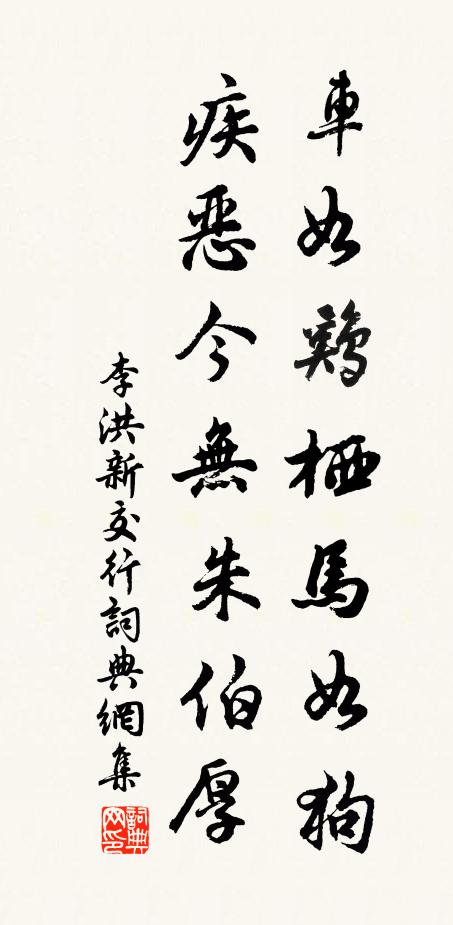 車如鷄栖馬如狗
疾惡今無朱伯厚
李洪新交行詞典網集
詞典網印